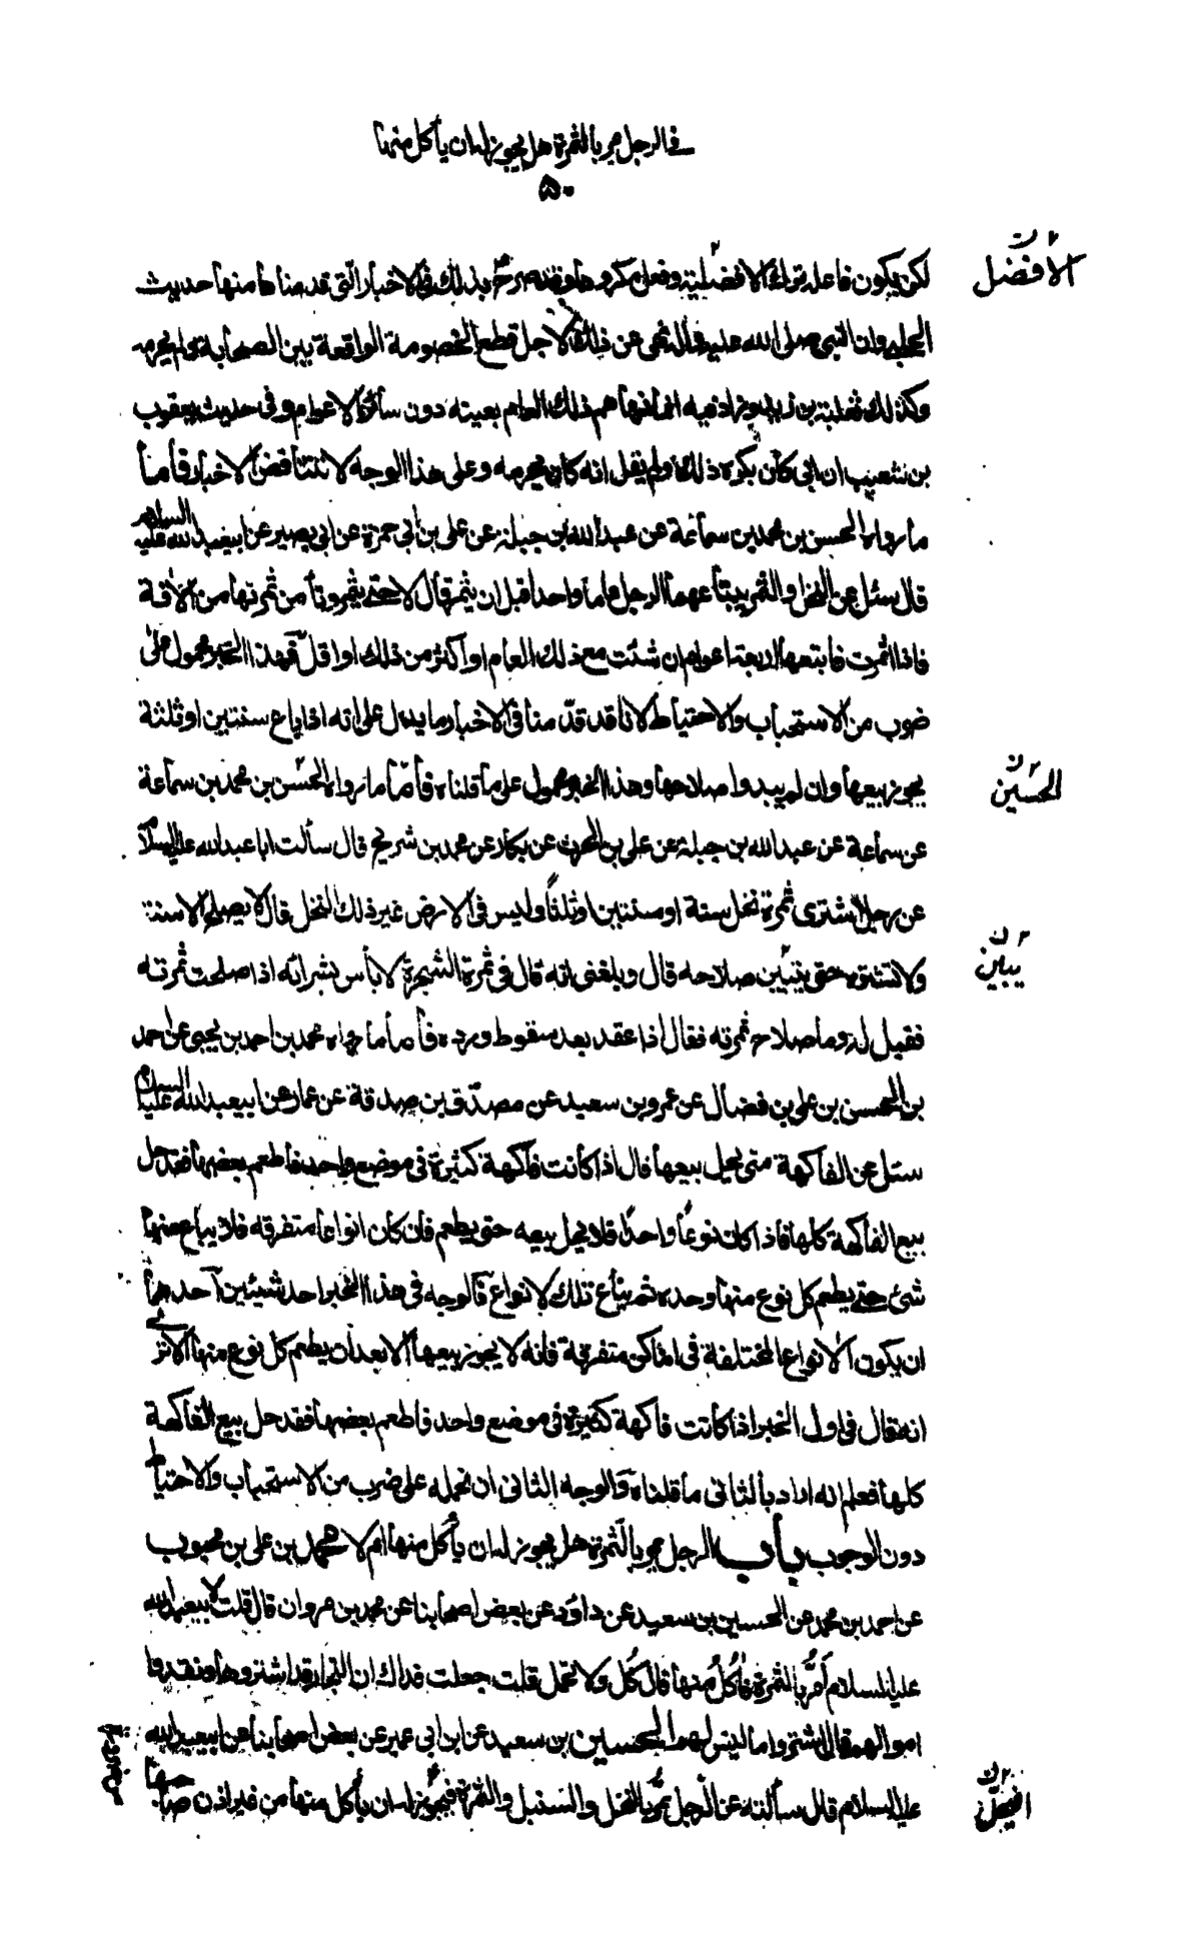 في الرجل يمر بالثمرة هل يجوز له ان يأكل منها
۵۰
لكن يكون فاعله ترك الافضلية وفعل مكروها وقد صرح بذلك في الاخبار التي قدمناها منها حديث
الافضل
الحلبي وان النبي صلى الله عليه واله نهى عن ذلك لاجل قطع الخصومة الواقعة بين الصحابة ولم يحرمه
وكذلك ثعلبة بن زيد وزاد فيه انما نهاهم ذلك العام بعينه دون سائر الاعوام وفى حديث يعقوب
بن شعيب ان ابى كان يكره ذلك ولم يقل انه كان يحرمه وعلى هذا الوجه لا تتناقض الاخبار فأما
ما رواه الحسن بن محمد بن سماعة عن عبد الله بن جبلة عن على بن ابى حمزة عن ابى بصير عن ابيعبد الله عليه السلام
قال سئل عن النخل والثمر يبتاعهما الرجل عاما واحدا قبل ان يثمر قال لا حتى يثمر وتأمن ثمرتها من الآفة
فاذا اثمرت فابتعها اربعة اعوام ان شئت مع ذلك العام او اكثر من ذلك او اقل فهذا الخبر محمول على
ضرب من الاستحباب والاحتياط لانا قد قدّمنا فى الاخبار ما يدل على انه اذا باع سنتين او ثلثة
يجوز بيعها وان لم يبدوا صلاحها وهذا الخبر محمول على ما قلناه فأمّا ما رواه الحسن بن محمد بن سماعة
الحسين
عن سماعة عن عبد الله بن جبلة عن على بن الحرث عن بكار عن محمد بن شريح قال سألت ابا عبد الله عليه السلام
عن رجل اشترى ثمرة نخل سنة او سنتين او ثلثا وليس فى الارض غير ذلك النخل قال لا يصلح الا سنة
ولا تشتره حتى يتبين صلاحه قال وبلغنى انه قال فى ثمرة الشجرة لا بأس بشرائه اذا صلحت ثمرته
يبين
فقيل له وما صلاح ثمرته فقال اذا عقد بعد سقوط ورده فأما ما رواه محمد بن احمد بن يحيى عن احمد
بن الحسن بن على بن فضال عن عمرو بن سعيد عن مصدّق بن صدقة عن عمار عن ابيعبد الله عليه السلام
سئل عن الفاكهة متى يحل بيعها قال اذا كانت فاكهة كثيرة فى موضع واحد فاطعم بعضها فقد حل
بيع الفاكهة كلها فاذا كان نوعاً واحدًا فلا يحل بيعه حتى يطعم فان كان انواعا متفرقه فلا يباع منها
شئ حتى يطعم كل نوع منها وحده ثم يباع تلك الانواع فالوجه فى هذا الخبر احد شيئين احدهما
ان يكون الانواع المختلفة فى اماكن متفرقة فانه لا يجوز بيعها الا بعد ان يطعم كل نوع منها الا ترى
انه قال فى اول الخبر اذا كانت فاكهة كثيرة فى موضع واحد فاطعم بعضها فقد حل بيع الفاكهة
كلها فعلم انه اراد بالثانى ما قلناه والوجه الثانى ان نحمله على ضرب من الاستحباب والاحتياط
دون الوجوب باب الرجل يمر بالثمرة هل يجوز له ان يأكل منها ام لا محمد بن على بن محبوب
عن احمد بن محمد عن الحسين بن سعيد عن داود عن بعض اصحابنا عن محمد بن مروان قال قلت لابيعبد الله
عليه السلام أمُرّ بالثمرة فآكُل منها قال كُل ولا تحمل قلت جعلت فداك ان التجار قد اشتروها ونقدوا
اموالهم قال اشتروا ما ليس لهم الحسين بن سعيد عن ابن ابى عمير عن بعض اصحابنا عن ابيعبد الله
عليه السلام قال سألته عن الرجل يمرّ بالنخل والسنبل والثمرة فيجوز له ان يأكل منها من غير اذن صاحبها